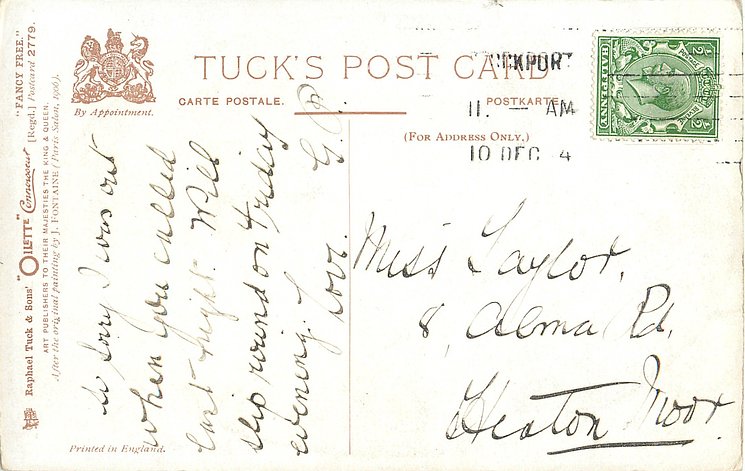 "FANCY FREE."
Raphael Tuck & Sons' "OILETTE" Connoisseur [Regd.] Postcard 2779.
ART PUBLISHERS TO THEIR MAJESTIES THE KING & QUEEN.
After the original painting by J. FONTAINE (Paris Salon, 1906).
By Appointment.
TUCK'S POST CARD
CARTE POSTALE.
POSTKARTE
(FOR ADDRESS ONLY.)
CKPORT
11. — AM
10 DEC 4
HALFPENNY
1/2
1/2
So sorry I was out
when you called
last night. Will
slip round on Friday
evening. Love.
G.
Miss Taylor,
8, Alma Rd.
Heaton Moor.
Printed in England.